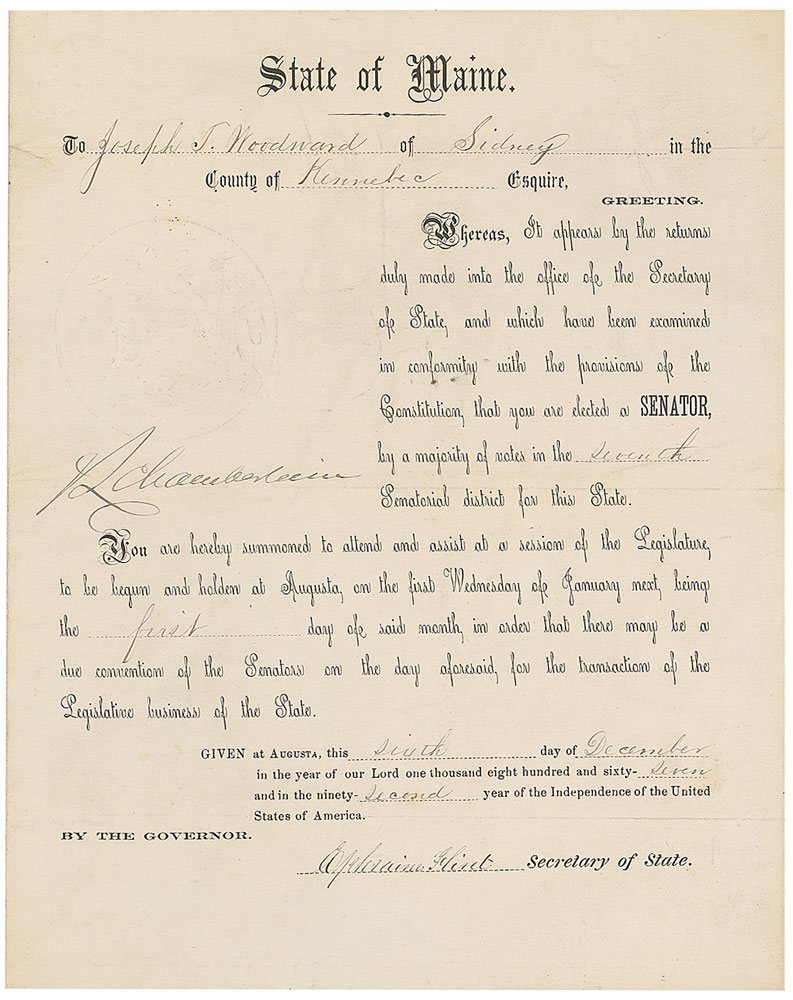 State of Maine.
To Joseph T. Woodward of Sidney in the
County of Kennebec Esquire,
GREETING.
Whereas, It appears by the returns
duly made into the office of the Secretary
of State, and which have been examined
in conformity with the provisions of the
Constitution, that you are elected a SENATOR,
by a majority of votes in the seventh
Senatorial district for this State.
J L Chamberlain
You are hereby summoned to attend and assist at a session of the Legislature,
to be begun and holden at Augusta, on the first Wednesday of January next, being
the first day of said month, in order that there may be a
due convention of the Senators on the day aforesaid, for the transaction of the
Legislative business of the State.
GIVEN at AUGUSTA, this sixth day of December
in the year of our Lord one thousand eight hundred and sixty-seven
and in the ninety-second year of the Independence of the United
States of America.
BY THE GOVERNOR.
Ephraim Flint Secretary of State.